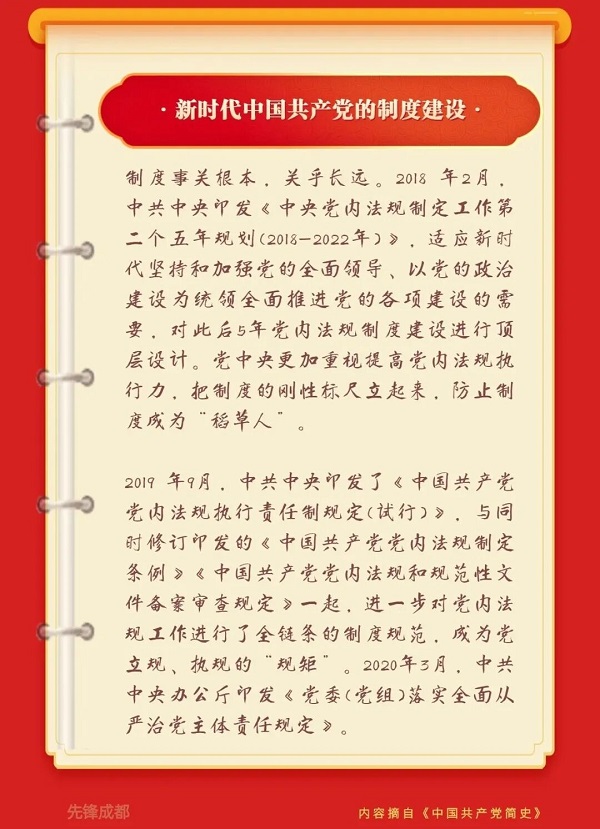 ·新时代中国共产党的制度建设·
制度事关根本，关乎长远。2018 年2月，
中共中央印发《中央党内法规制定工作第
二个五年规划(2018—2022年)》，适应新时
代坚持和加强党的全面领导、以党的政治
建设为统领全面推进党的各项建设的需
要，对此后5年党内法规制度建设进行顶
层设计。党中央更加重视提高党内法规执
行力，把制度的刚性标尺立起来，防止制
度成为“稻草人”。
2019 年9月，中共中央印发了《中国共产党
党内法规执行责任制规定(试行)》，与同
时修订印发的《中国共产党党内法规制定
条例》《中国共产党党内法规和规范性文
件备案审查规定》一起，进一步对党内法
规工作进行了全链条的制度规范，成为党
立规、执规的“规矩”。2020年3月，中共
中央办公厅印发《党委(党组)落实全面从
严治党主体责任规定》。
先锋成都
内容摘自《中国共产党简史》